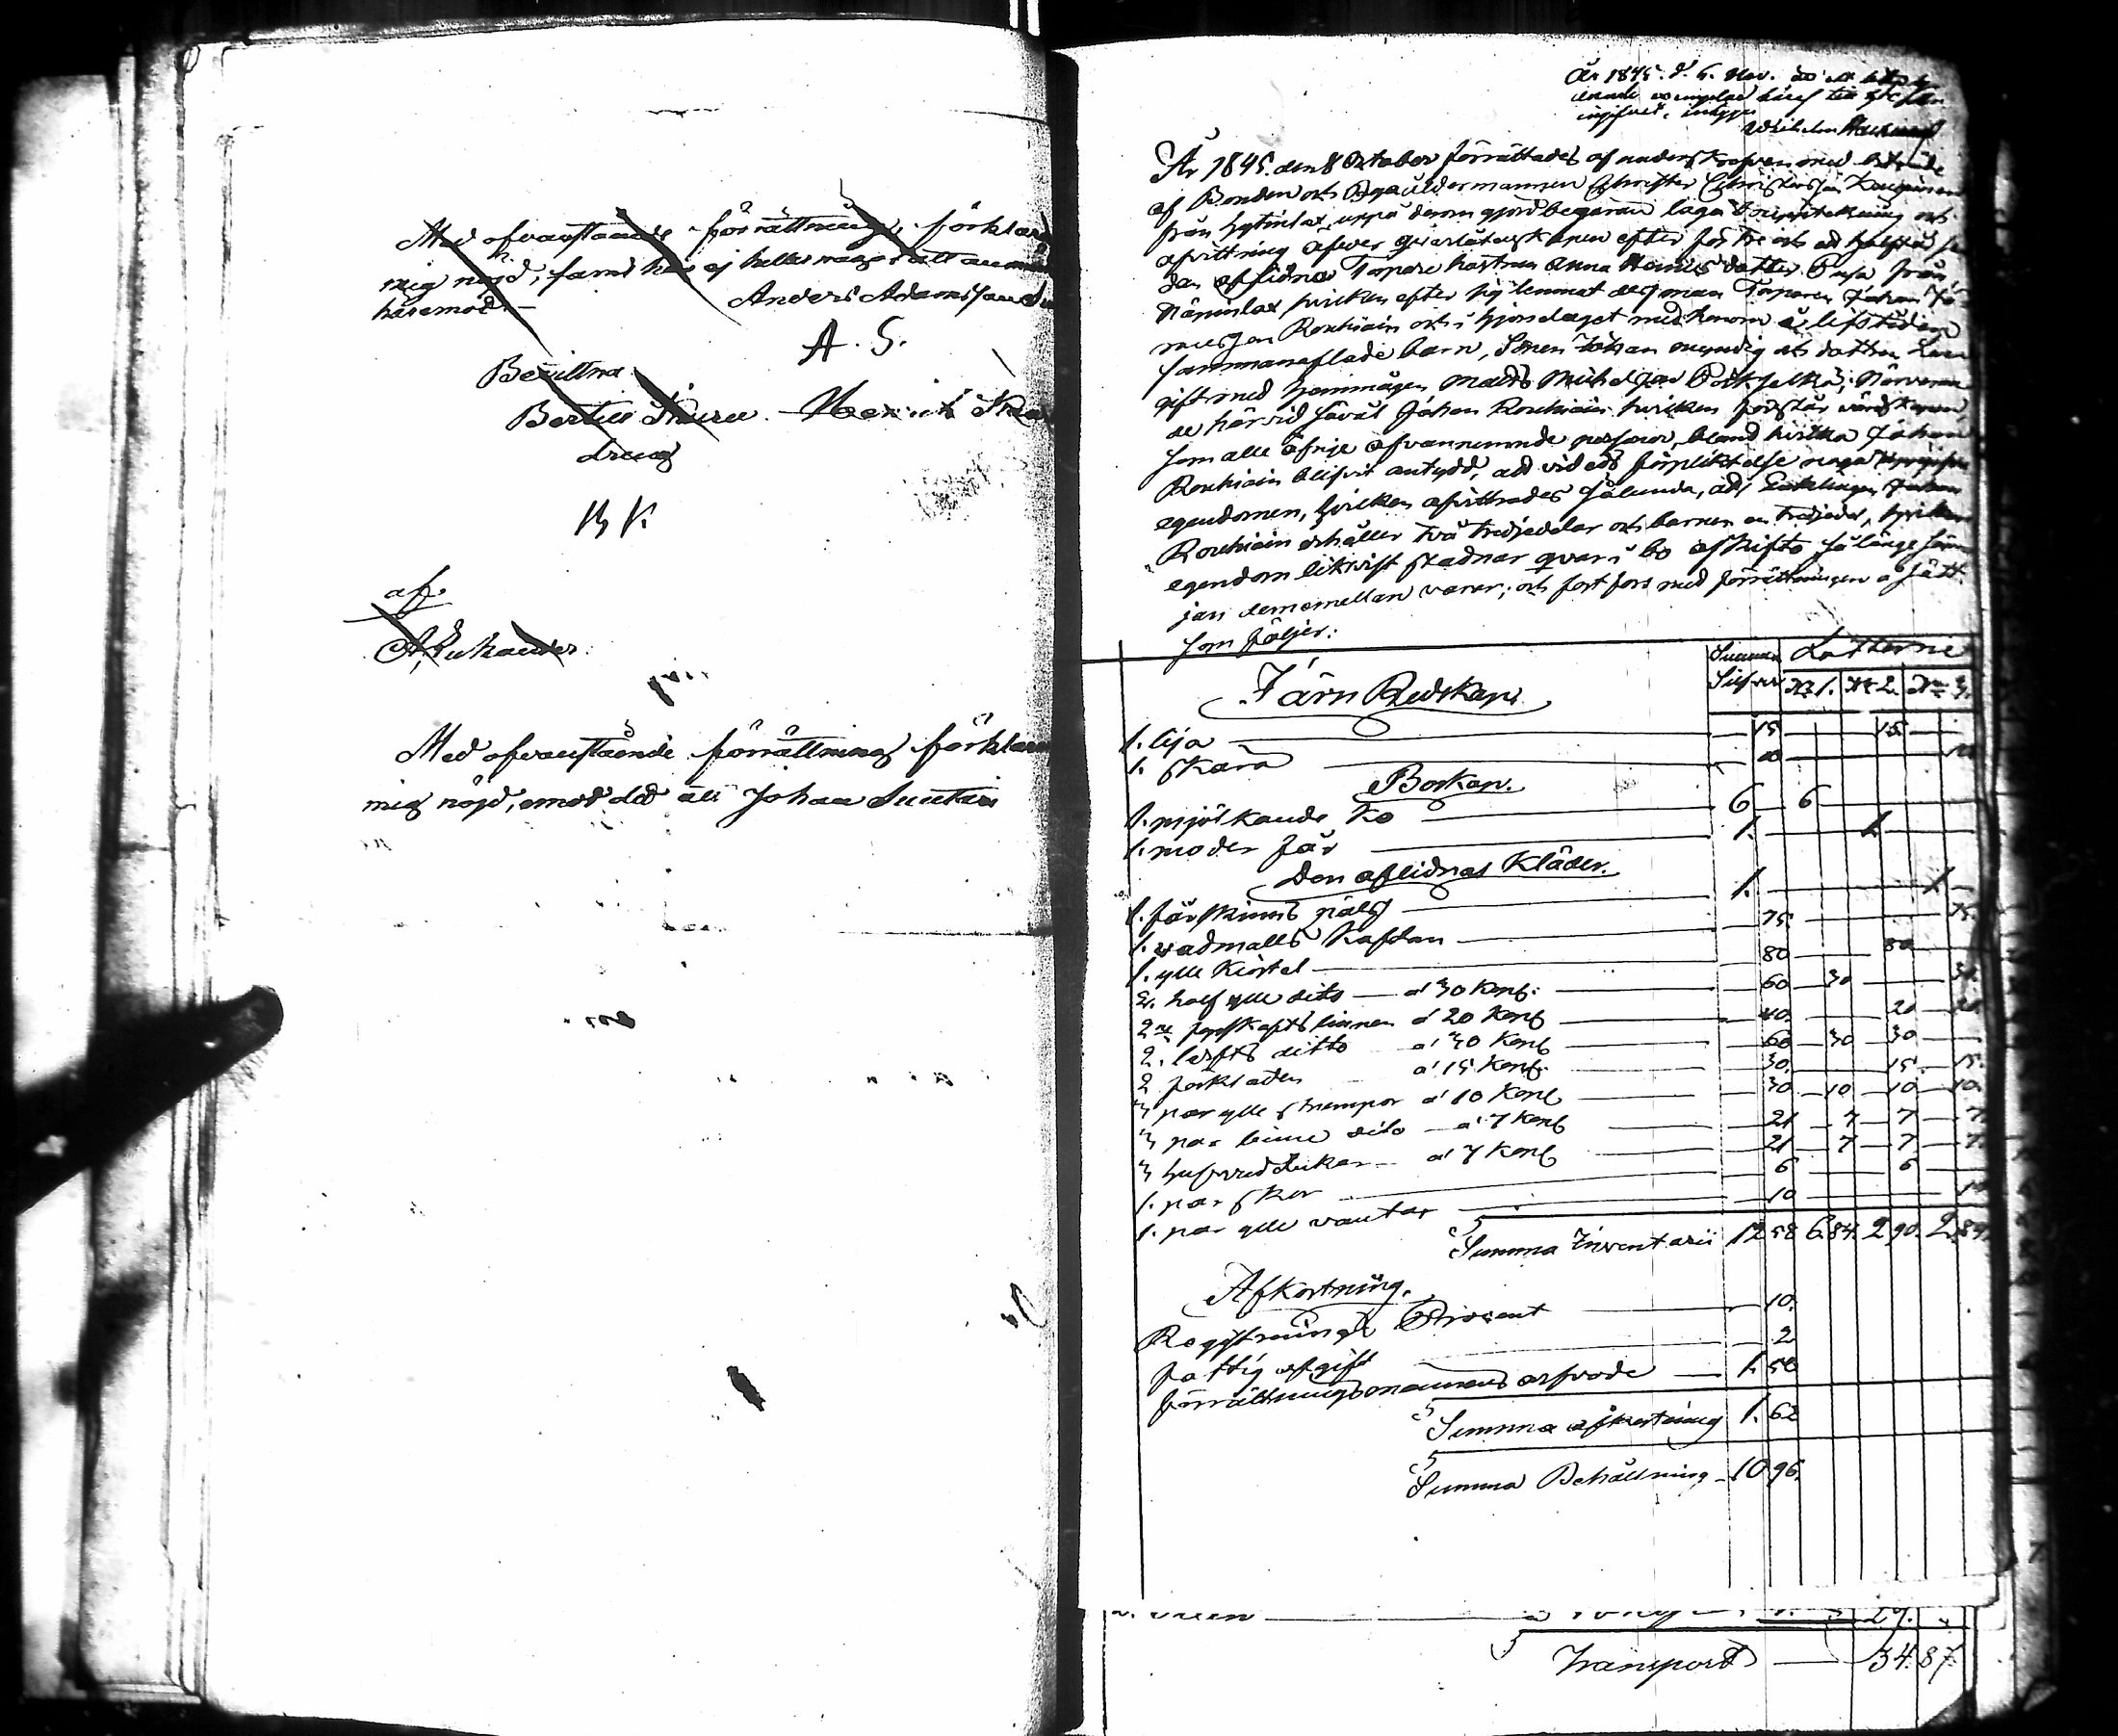 Med ofvanstående förrättning förklara
mig nöjd, samt har ej heller något att anmärka
häremot. Anders Adamsson
A. S.
Bevittna
Bertil Skuru. Henrik
dräng
B K.
af.
Med ofvanstående förrättning förklarar
mig nöjd, emot det att Johan Suntari
År 1845. d. 6. Nov. ett
exemplar häraf till
ingifvet, intygar
Wilhelm
År 1845. den 8 Oktober förrättades af undertecknad med biträde
af Bonden och Byaåldermannen Christer Christersson
från uppå derom gjord begäran laga Bouppteckning och
afvittring öfver qvarlåtenskapen efter för tre och ett halft år
dan aflidna Torpare hustrun Anna Henriksdotter från
Näminlax hvilken efter sig lemnat dess man Torparen Johan
Rouhiain och i hjonelaget med honom i lifstiden
sammanaflade barn, Sonen Johan myndig och dottren
gift med hemmågen Matts Michelsson närvaran
de härvid såväl Johan Rouhiain hvilken förestår
som alle öfrige ofvannemnde personer, bland hvilka Johan
Rouhiain blifvit antydd, att vid eds förpliktelse noga uppgifva
egendomen, hvilken afvittrades sålunda, att Enklingen Johan
Rouhiain erhåller två tredjedelar och barnen en tredjedel, hvilken
egendom likvist stadnar qvar i bo oskifto så länge säm
jan dememellan varar; och fort fors med förrättningen
som följer:
Summa Silfver Lotterne
Järn Redskap. N:o 1. N:o 2. N:o 3.
1. lija 15 15
1. skära 10 10
Boskap.
1. mjölkande Ko 6 6
1. moder får 1. 1.
Den aflidnas Kläder.
1. fårskinns päls 1. 1
1. vadmalls Kaftan 75 75.
1. ylle Kiortel 80 80
2. half ylle dito á 30 Kop. 60 30 30.
2:ne linnen á 20 Kop 40 20 20
2. lerfts ditto á 30 Kop 60 30 30
2 förkläden á 15 Kop. 30 15 15.
3 par ylle strumpor á 10 Kop 30 10 10 10
3 par linne dito á 7 Kop 21 7 7 7
3 hufvuddukar á 7 Kop 21 7 7 7
1. par skor 6 6
1. par ylle vantar 10 10
Summa Inventarii 12 58 6.84. 2.90. 2.84.
Afkortning.
Procent 10.
fattig afgift 2
förrättningsmannens arfvode 1. 50
Summa afkortning 1. 62
Summa Behållning 10.96.
27.
Transport 34.87.